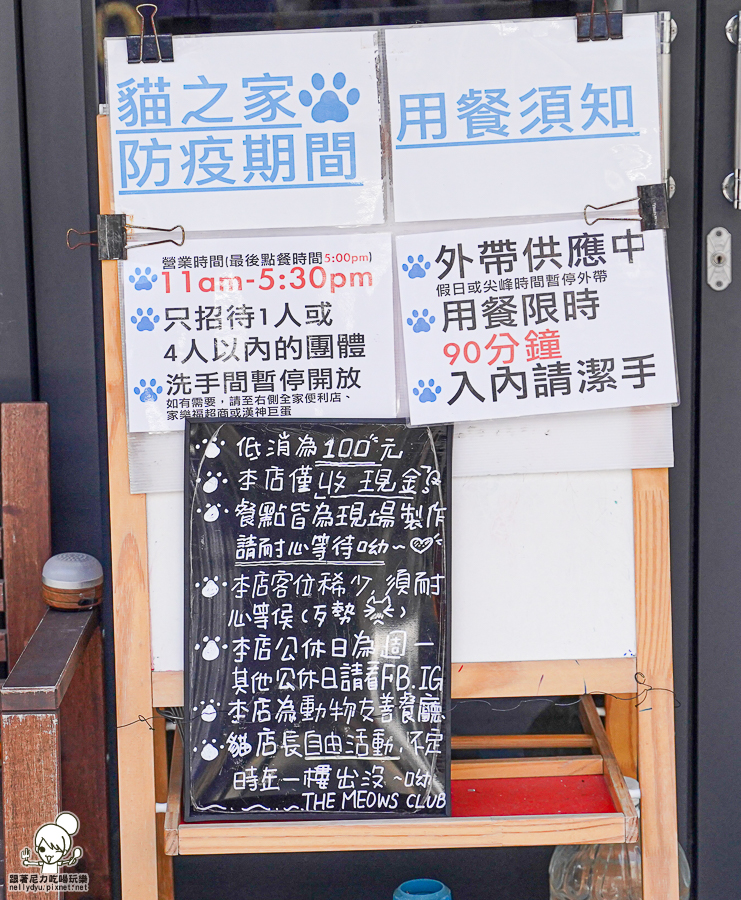 貓之家
防疫期間
用餐須知
營業時間(最後點餐時間5:00pm)
11am-5:30pm
只招待1人或
4人以內的團體
洗手間暫停開放
如有需要，請至右側全家便利店、
家樂福超商或漢神巨蛋
外帶供應中
假日或尖峰時間暫停外帶
用餐限時
90分鐘
入內請潔手
低消為100元
本店僅收現金
餐點皆為現場製作
請耐心等待呦~
本店客位稀少，須耐
心等候(歹勢)
本店公休日為週一
其他公休日請看FB.IG
本店為動物友善餐廳
貓店長自由活動，不定
時在一樓出沒~呦
THE MEOWS CLUB
跟著尼力吃喝玩樂
nellydyu.pixnet.net